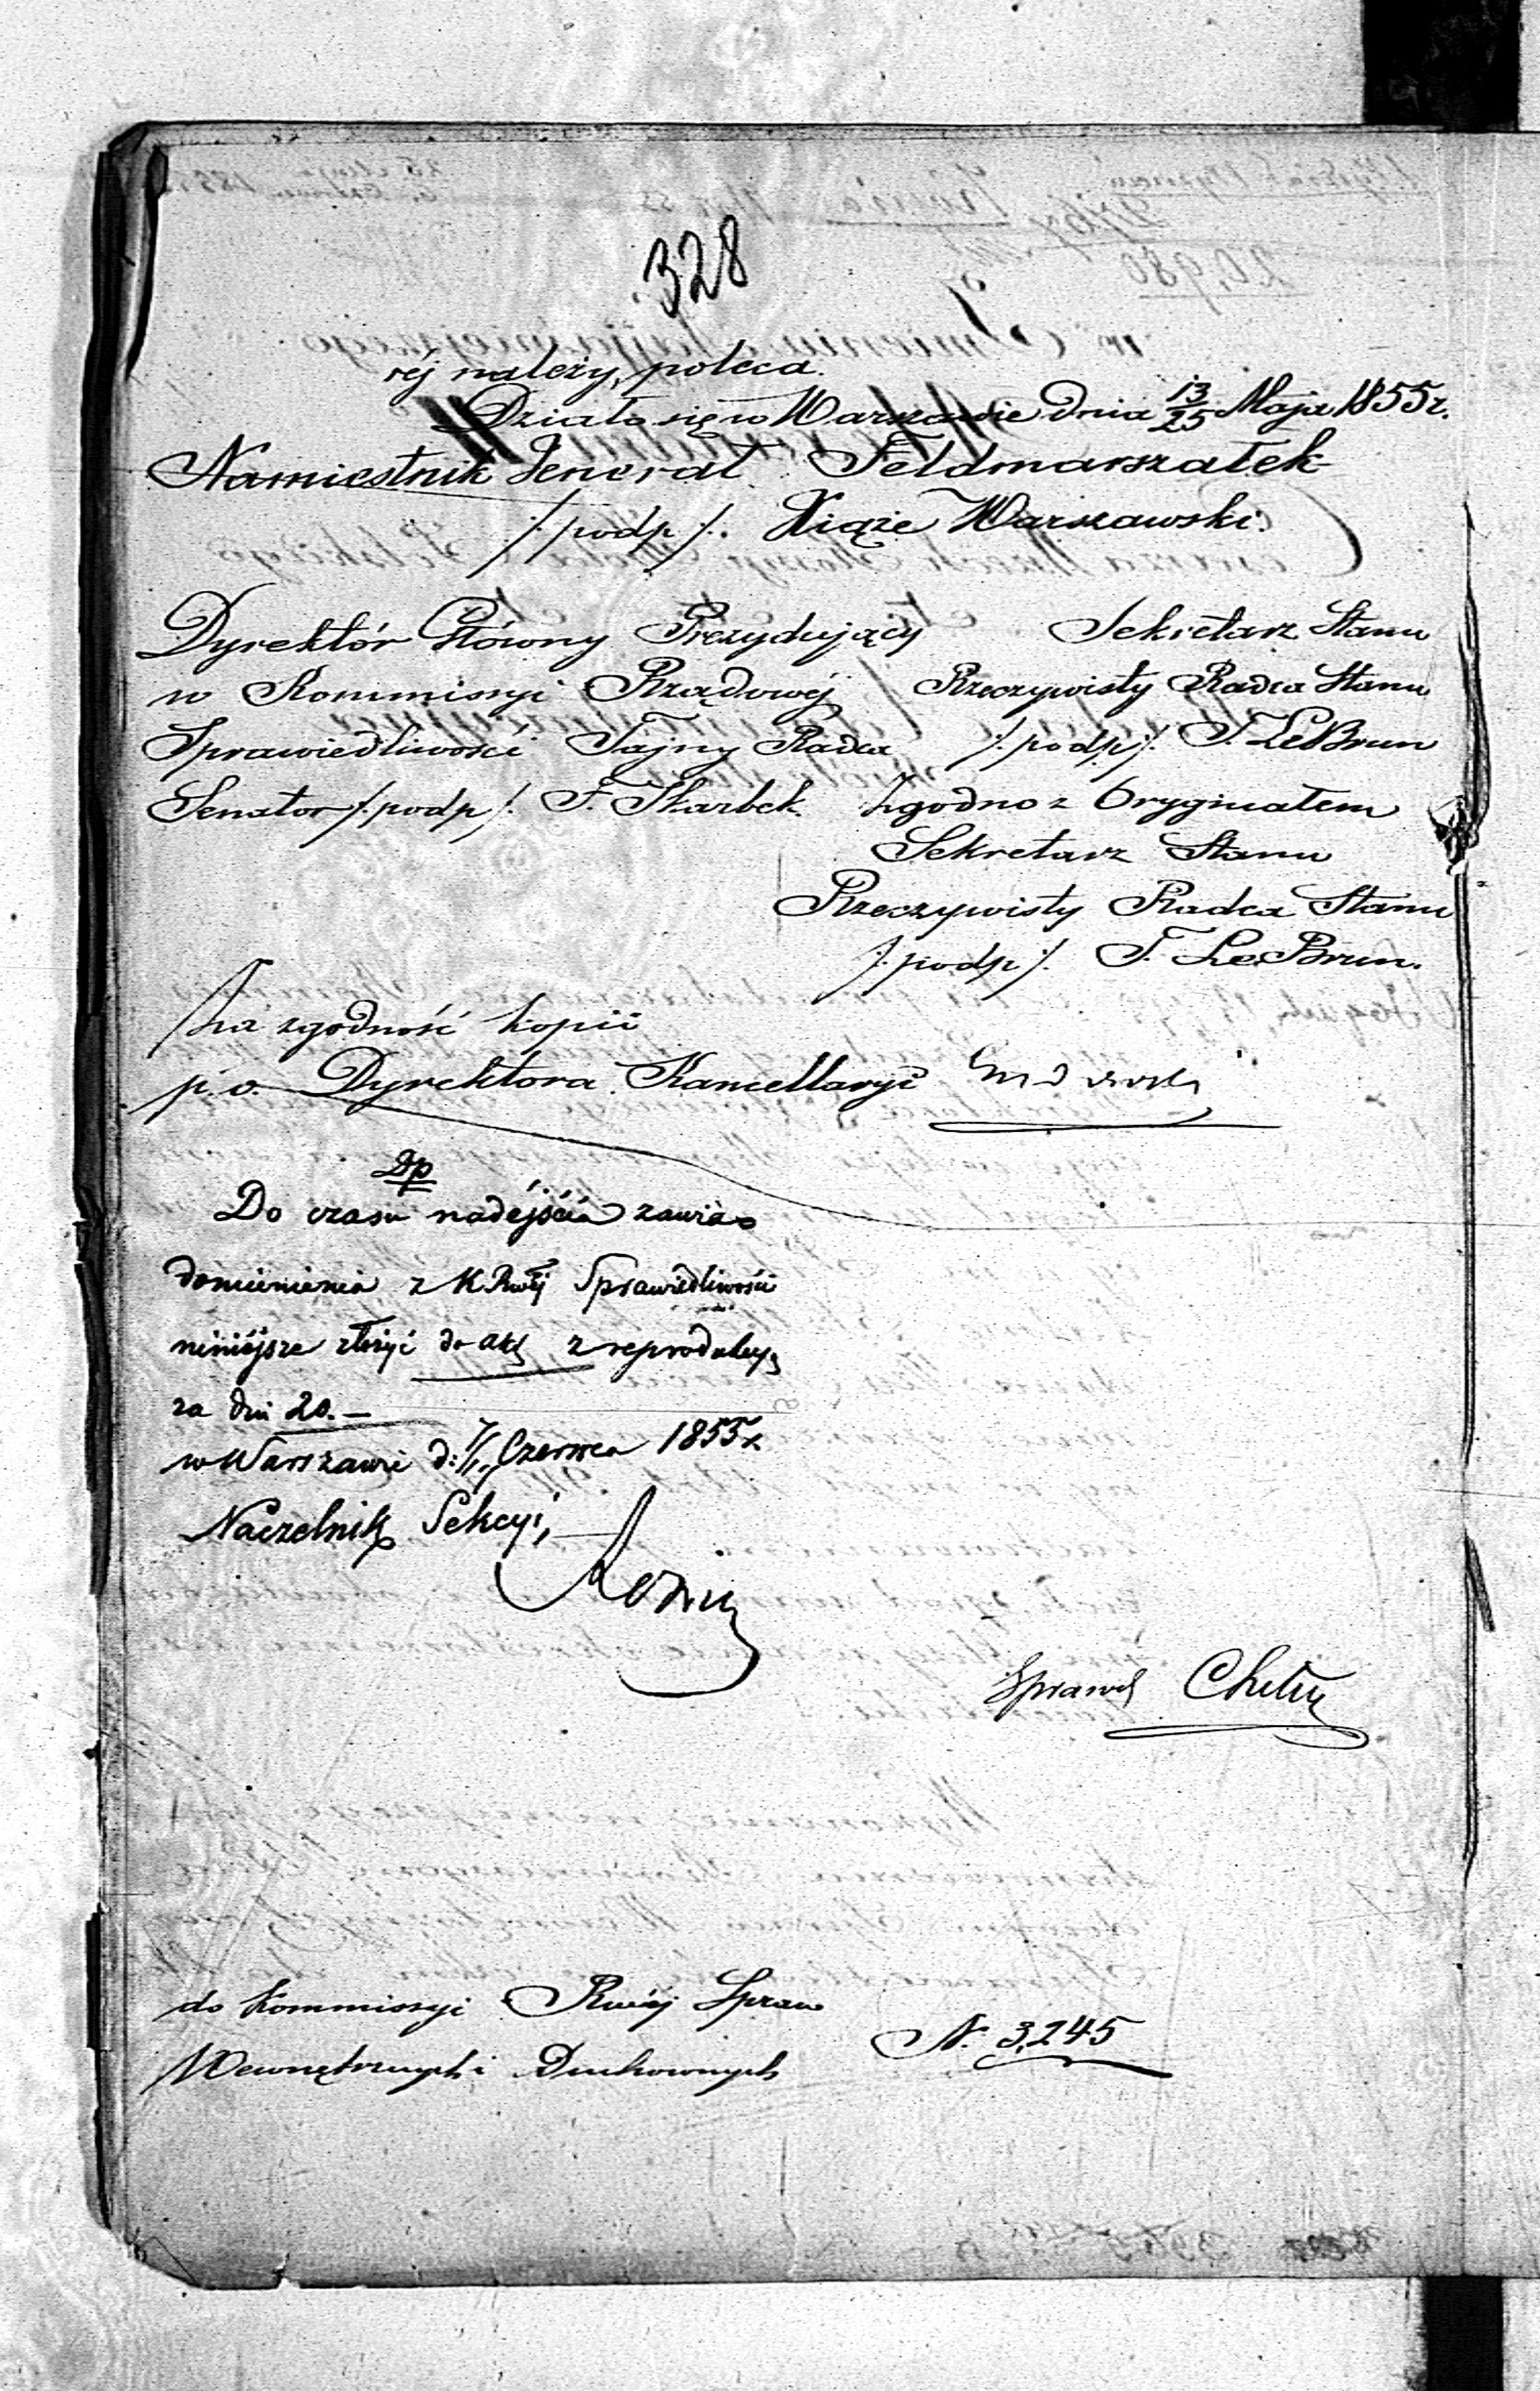 328
réj należy, poleca.
Działo się w Warszawie dnia 13/25 Maja 1855 r.
Namiestnik Jenerał Feldmarszałek
/:podp:/. Xiąże Warszawski.
Dyrektór Główny Prezydujący
w Kommissyi Rządowéj
Sprawiedliwości Tajny Radca
Senator /:podp:/. F. Skarbek.
Sekretarz Stanu
Rzeczywisty Radca Stanu
/:podp:/. T. LeBrun
Zgodno z Oryginałem
Sekretarz Stanu
Rzeczywisty Radca Stanu
/:podp:/. T. LeBrun.
Za zgodność kopii
p.o. Dyrektora Kancellaryi
Dp
Do czasu nadéjścia zawia-
domienienia z K. Rwéj Sprawiedliwości
niniéjsze złożyć do akt z reprodukcyą
za dni 20.—
w Warszawie d: Czerwca 1855 r.
Naczelnik Sekcyi,
do Kommissyi Rwéj Spraw
Wewnętrznych i Duchownych
N. 3,245